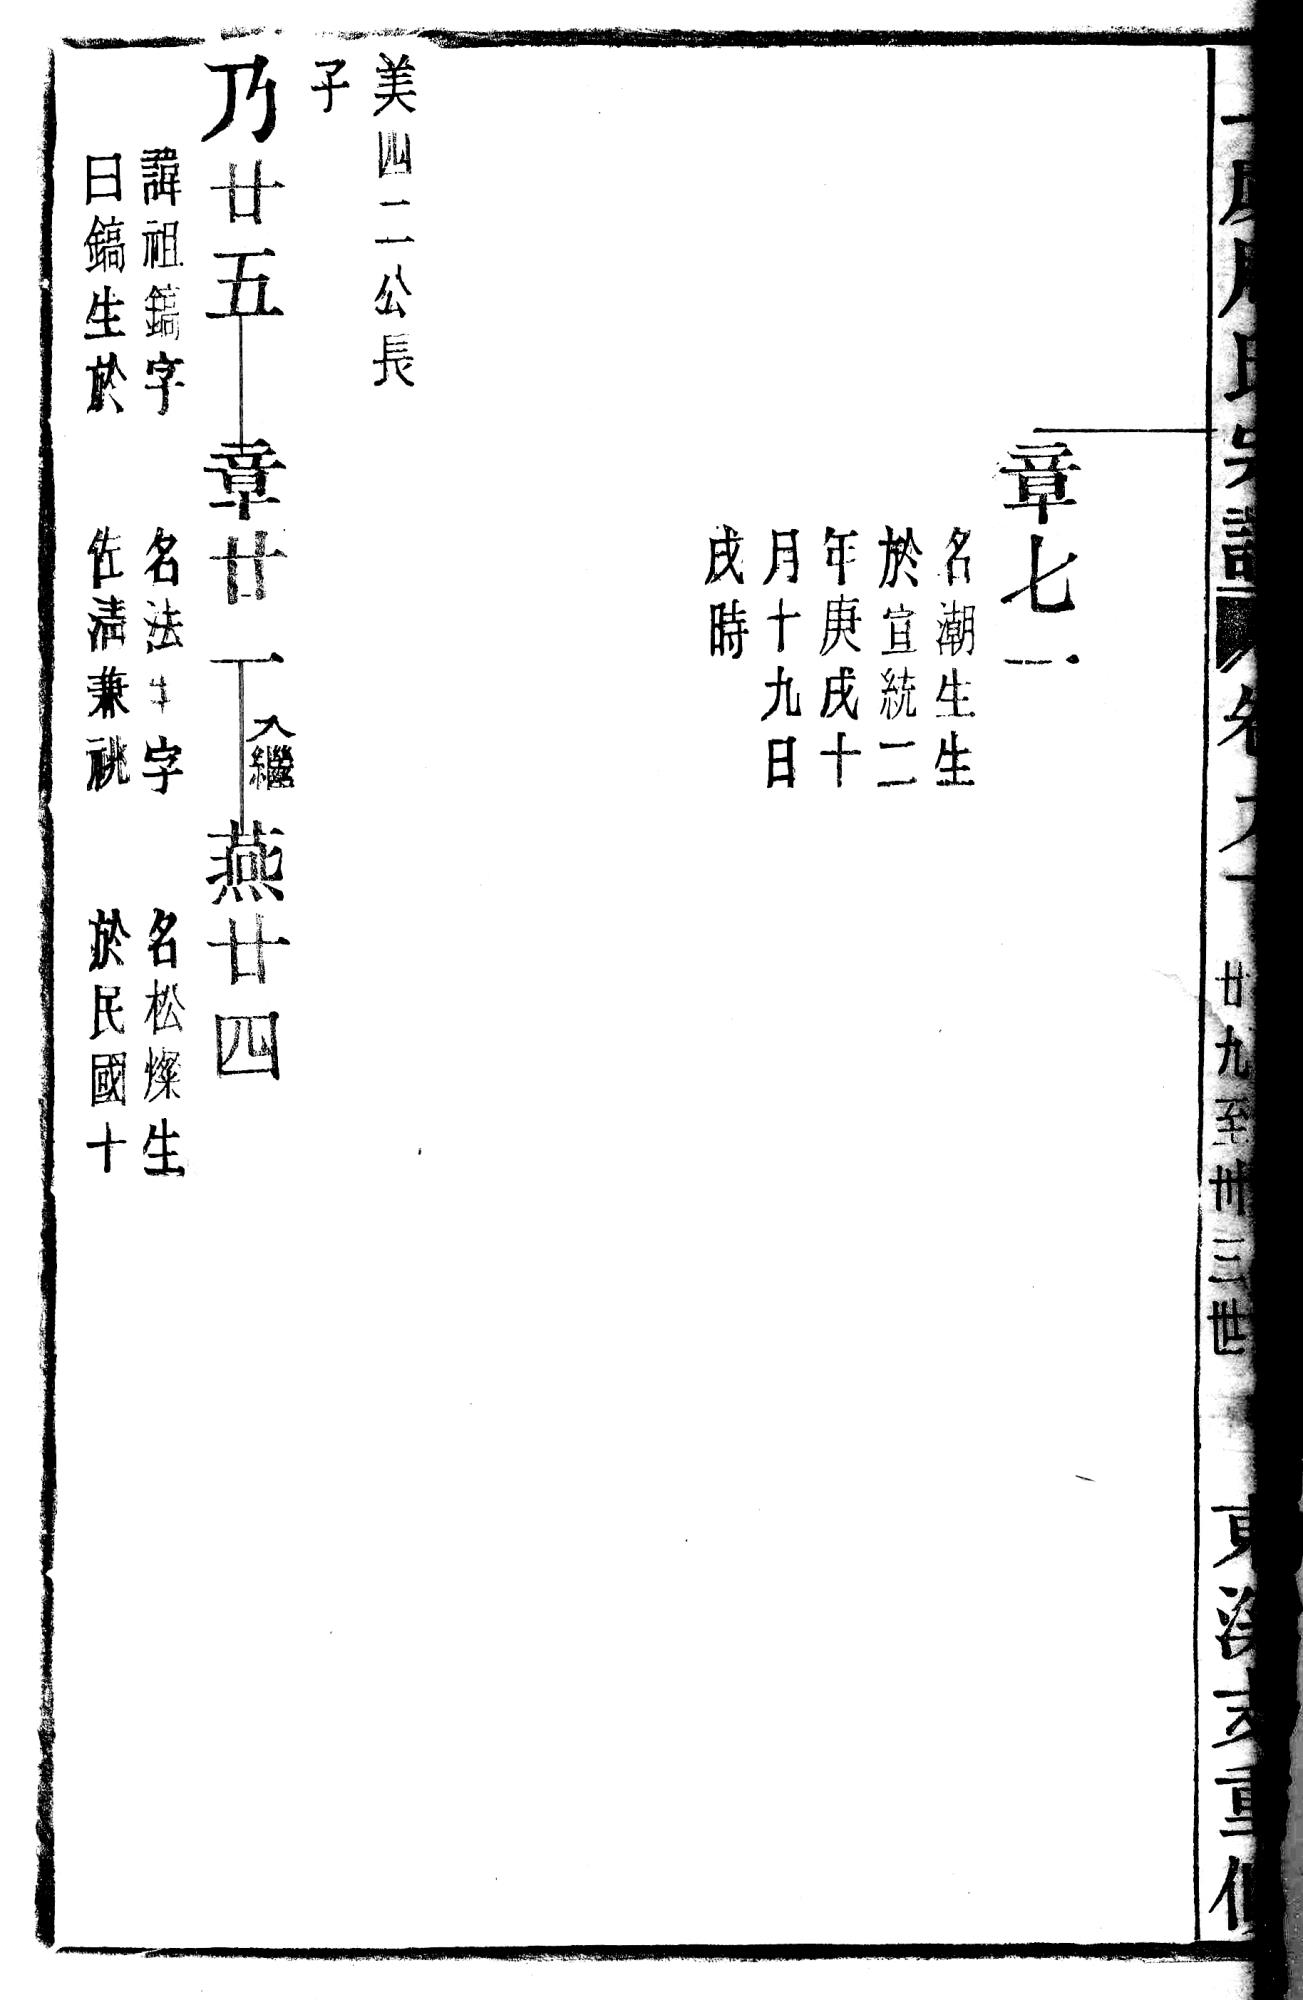 氏
卷
廿九至卅三世
東溪重
章七一
名潮生生
於宣統二
年庚戌十
月十九日
戌時
美四二公長
子
乃廿五
諱祖鎬字
曰鎬生於
章廿一
入繼
名法字
佐清兼祧
燕廿四
名松燦生
於民國十